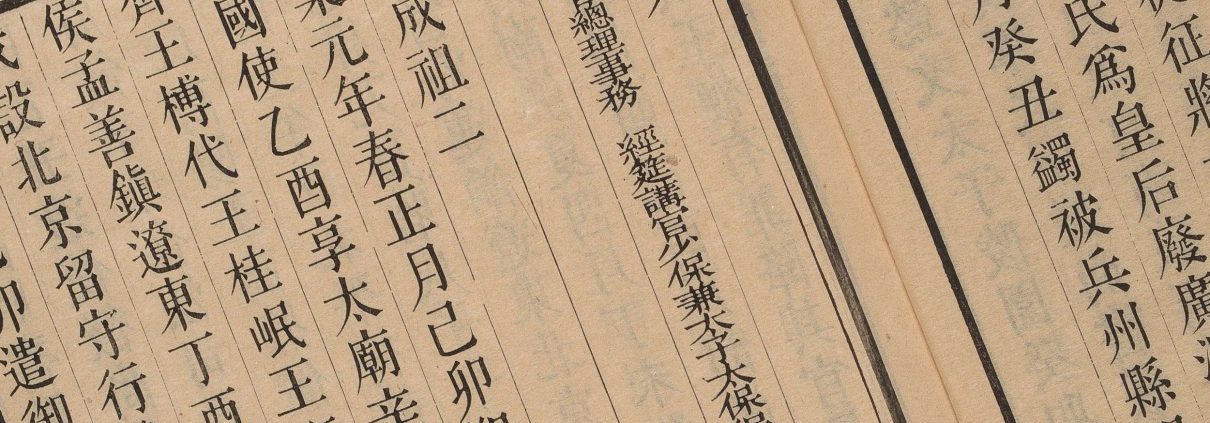 征將
氏爲皇后廢廣
月癸丑蠲被兵州縣
總理事務 經筵講官少保兼太子太保
成祖二
元年春正月己卯
國使乙酉享太廟辛
齊王榑代王桂岷王
侯孟善鎭遼東丁酉
設北京留守行
卯遣御